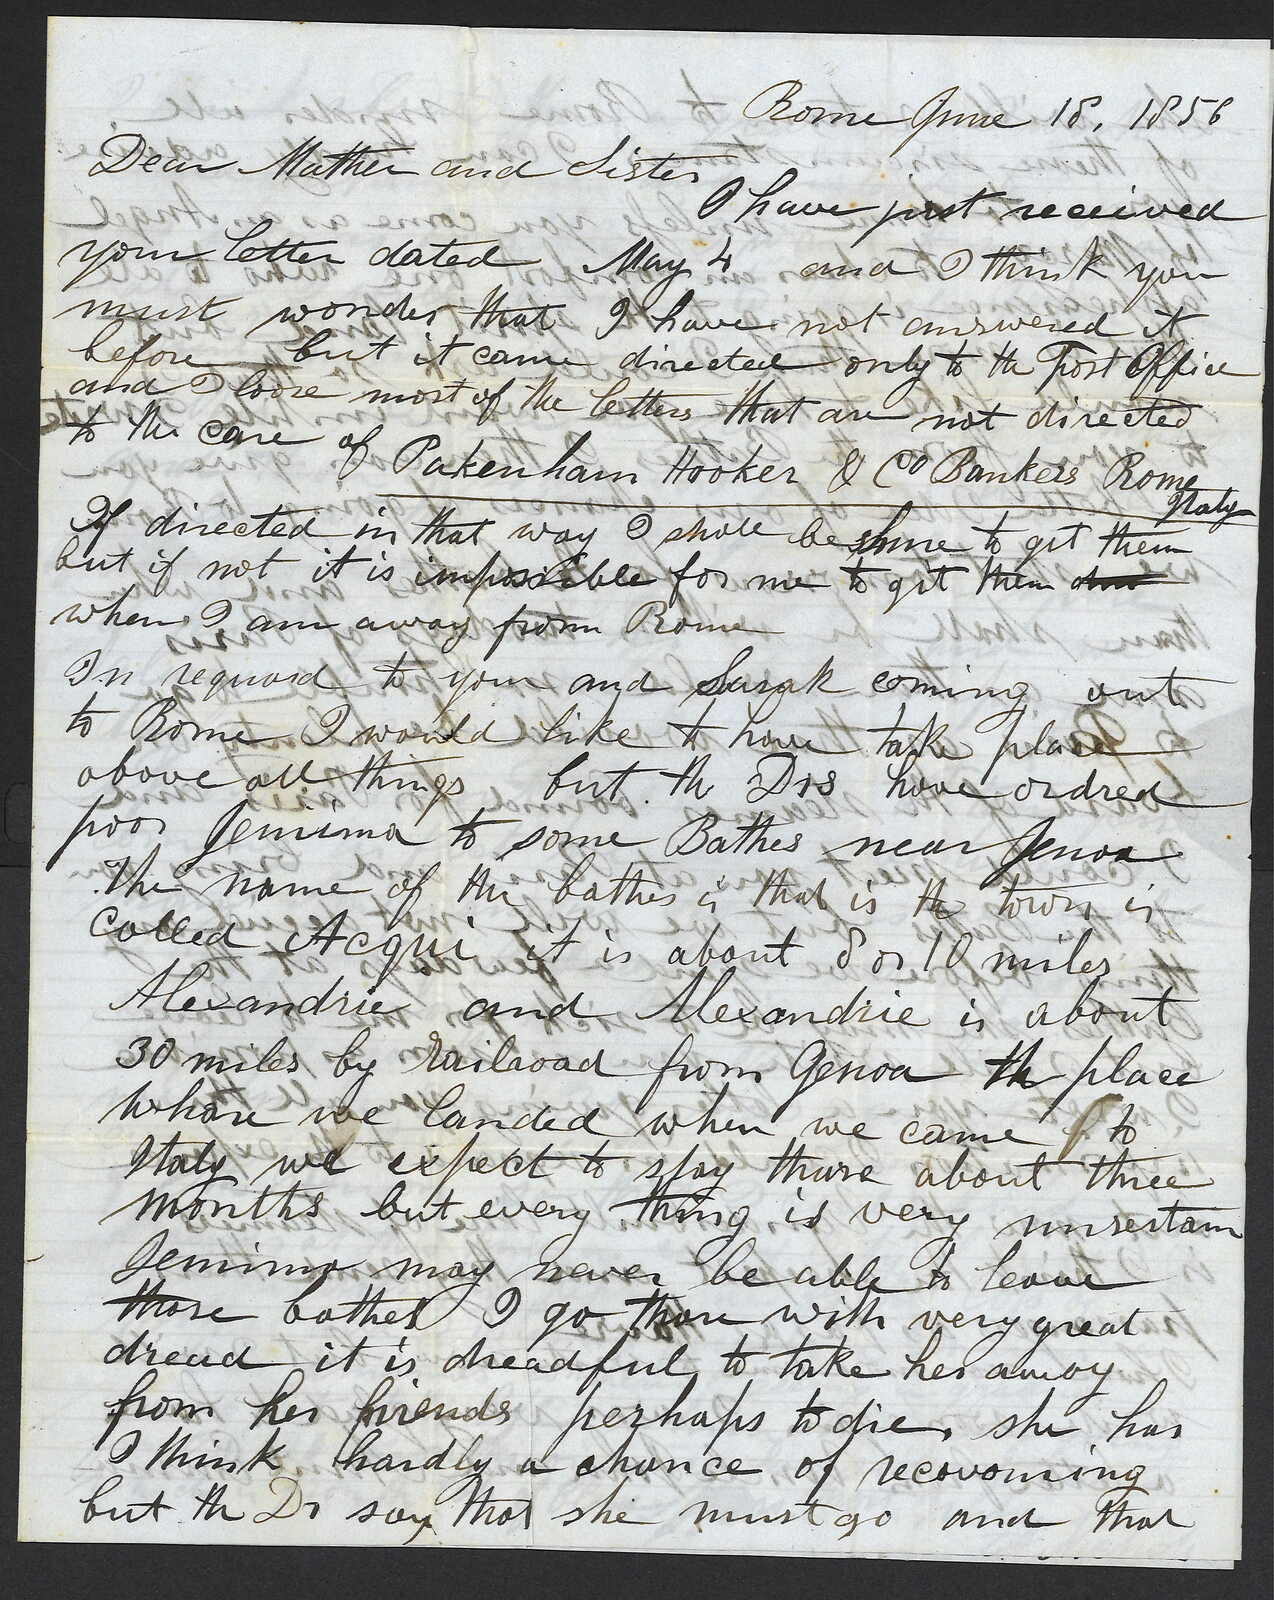 Rome June 18, 1856
Dear Mother and Sister
I have just received
your letter dated May 4 and I think you
must wonder that I have not answered it
before but it came directed only to the Post Office
and I loose most of the letters that are not directed
to the care of Pakenham Hooker & Co Bankers Rome
Italy
If directed in that way I shall be shure to get them
but if not it is impossible for me to get them
when I am away from Rome
In reguard to your and Sarah coming out
to Rome I would like to have take place
above all things but the Drs have ordred
poor Jemima to some Bathes near Jenoa
the name of the bathes is that is the town is
called Acqui it is about 8 or 10 miles
Alexandrie and Alexandrie is about
30 miles by railroad from Genoa the place
whare we landed when we came to
Italy we expect to stay thare about three
months but every thing is very unsertain
Jemima may never be able to leave
those bathes I go thare with very great
dread it is dreadful to take her away
from her friends perhaps to die, she has
I think hardly a chance of recovering
but the Dr say that she must go and that